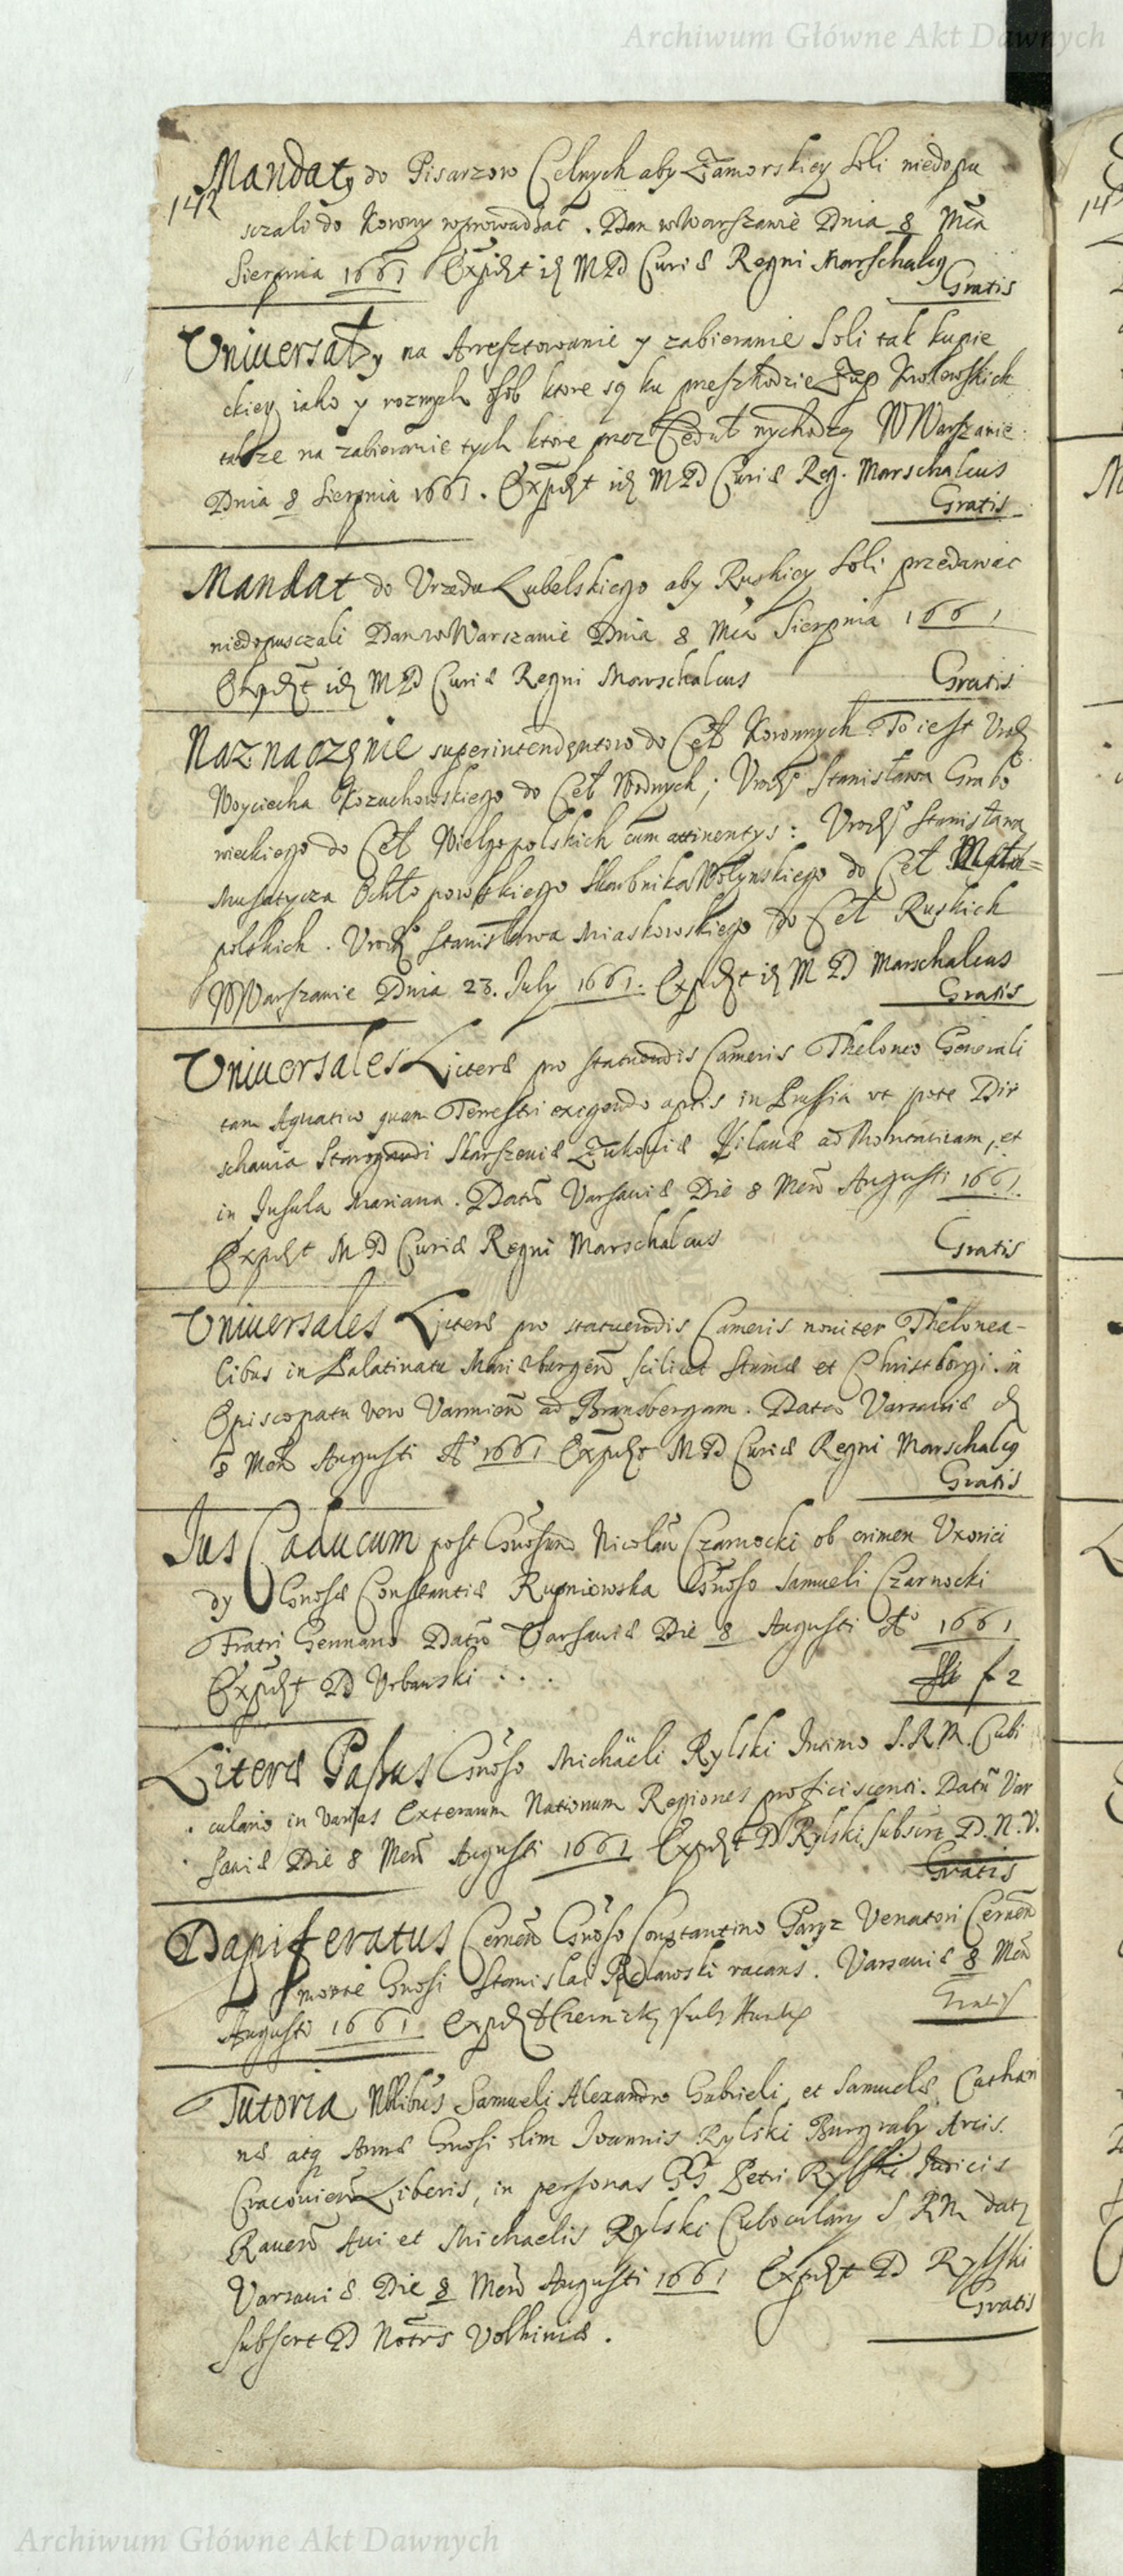 Archiwum Główne Akt Dawnych
Mandaty do Pisarzow Celnych aby Zamorskiey Soli niedopu
142
sczali do Korony wprowadzać. Dan w Warszawie Dnia 8 Mca
Sierpnia 1661 Expedt idem MD Curiæ Regni Marschalcus
Gratis
Uniuersały na Arresztowanie y zabieranie Soli tak kupie
ckiey iako y roznych osob ktore są ku preszkodzie Zup Krolewskich
także na zabieranie tych ktore przez Cedul wychodzą W Warszawie
Dnia 8 Sierpnia 1661. Expedt idem MD Curiæ Reg. Marschalcus
Gratis
Mandat do Vrzędu Lubelskiego aby Ruskiey Soli przedawac
niedopusczali Dan w Warszawie Dnia 8 Mca Sierpnia 1661
Expedt idem MD Curiæ Regni Marschalcus
Gratis
Naznaczęnie superintendentow do Ceł Koronnych To iest Urod
Woyciecha Kozuchowskiego do Ceł Wodnych; Urodo Stanisława Grabo
wieckiego do Ceł Wielgopolskich cum attinentys: Urodo Stanisława
Musatycza Ochłopowskiego Skarbnika Wołynskiego do Ceł Mało=
polskich. Urodo Stanisława Miaskowskiego do Ceł Ruskich
W Warszawie Dnia 23. July 1661. Expedt idem MD Marschalcus
Gratis
Uniuersales Literæ pro statuendis Cameris Theloneo Generali
tam Aquatico quam Terrestri exigendo aptis in Prussia ut pote Dir
schauia Starogardi Skarszeuiæ Zukouiæ Pilauæ ad Montauiam, et
in Insula Mariana. Datũ Varsauiæ Die 8 Men̄ Augusti 1661.
Expedt MD Curiæ Regni Marschalcus
Gratis
Uniuersales Literæ pro statuendis Cameris nouiter Thelonea-
libus in Palatinatu Mariæburgen̄ scilicet Stumæ et Christborgi. in
Episcopatu vero Varmien̄ ad Brunsbergam. Datæ Varsauiæ d
8 Men̄ Augusti Ao 1661 Expedt MD Curiæ Regni Marschalcus
Gratis
Ius Caducum post Gnosum Nicolaũ Czarnocki ob crimen Uxorici
dy Gnosæ Constantiæ Rupniowska Gnoso Samueli Czarnocki
Fratri Germano Datũ Varsauiæ Die 8 Augusti Ao 1661
Expedt D Vrbanski
f 2
Literæ Passus Gnoso Michäeli Rylski Intimo S.R.M. Cubi
culario in varias Exterarum Nationum Regiones proficiscenti. Datũ Var
sauiæ Die 8 Men̄ Augusti 1661 Expedt D Rylski subscrt D. N. V.
Gratis
Dapiferatus Cernen̄ Gnoso Constantino Paryz Venatori Cernen̄
morte Gnosi Stanislai vacans. Varsauiæ 8 Men̄
Augusti 1661 Expedt
Gratis
Tutoria Nblibus Samueli Alexandro Gabrieli et Samuelæ Cathari
næ atq Annæ Gnosi olim Ioannis Rylski Burgraby Arcis
Cracouien̄ Liberis, in personas GG Petri Rylski Iudicis
Rauen̄ Aui et Michaelis Rylski Cubicularij S RM dat
Varsauiæ Die 8 Men̄ Augusti 1661 Expedt D Rylski
Gratis
subscrt D Notrs Volhiniæ.
Archiwum Główne Akt Dawnych